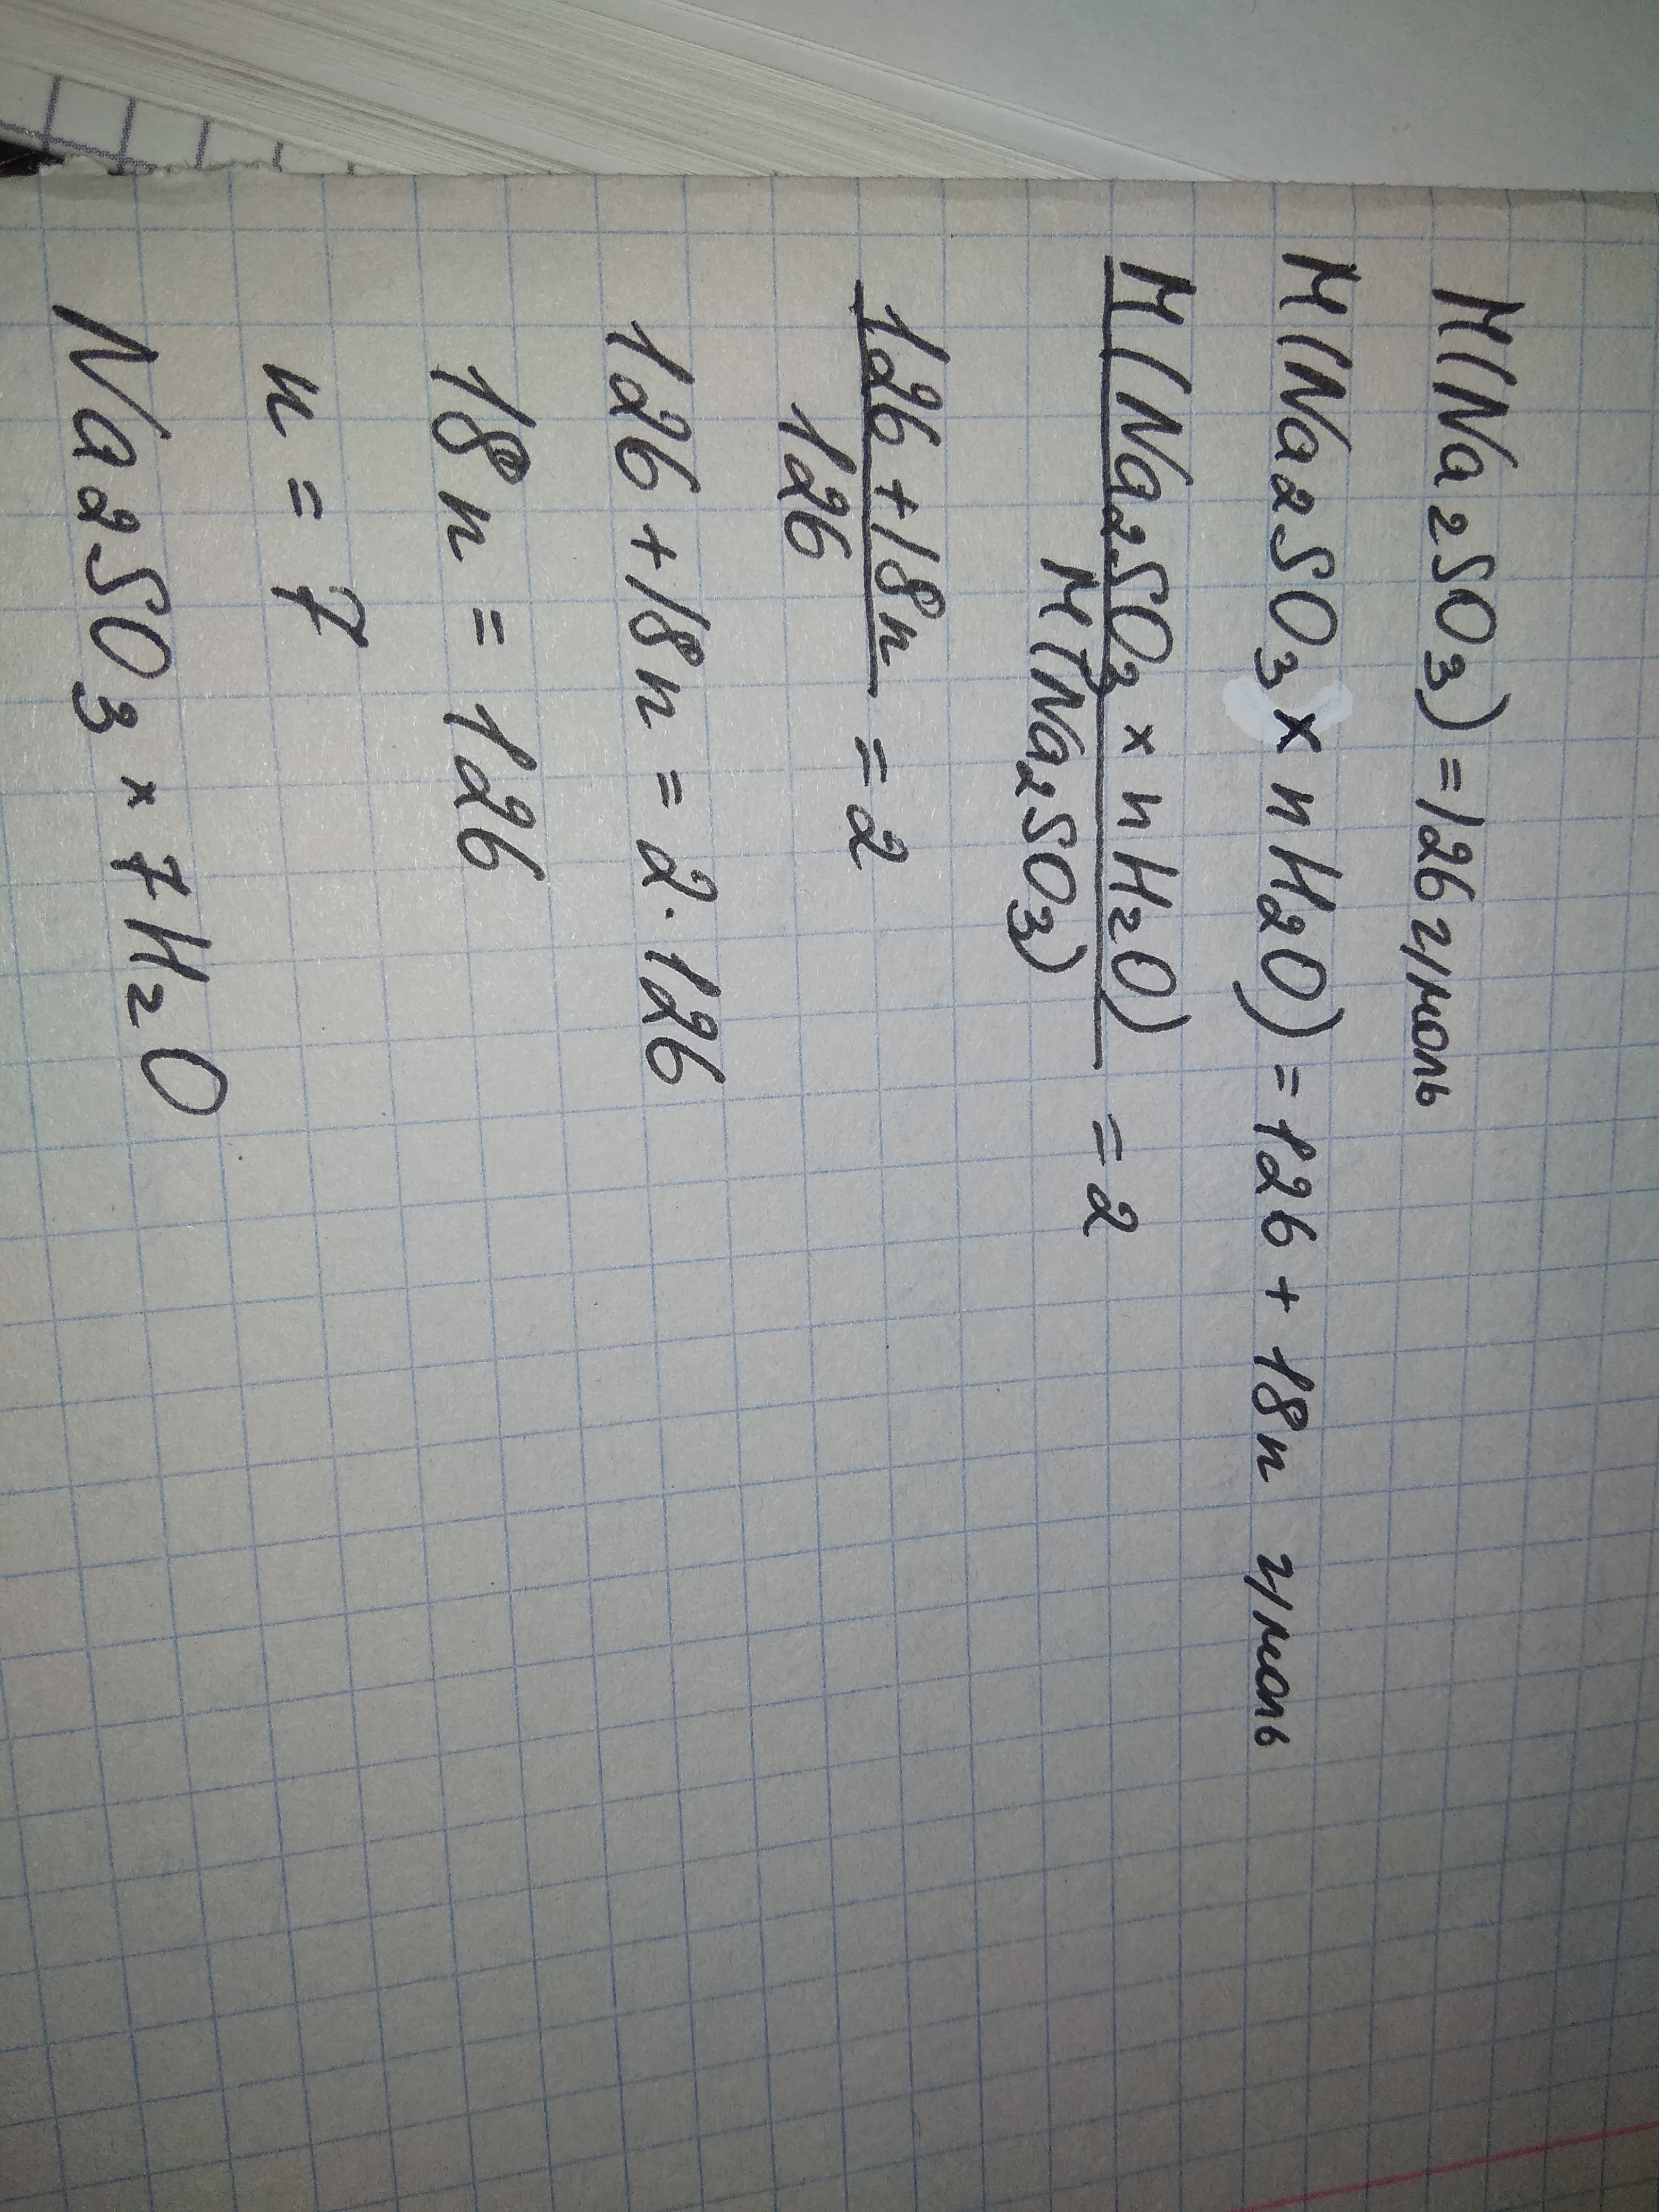 M(Na₂SO₃) = 126 г/моль
M(Na₂SO₃ × nH₂O) = 126 + 18n г/моль
M(Na₂SO₃ × nH₂O) = 2
M(Na₂SO₃)
126 + 18n = 2
126
126 + 18n = 2 · 126
18n = 126
n = 7
Na₂SO₃ × 7H₂O